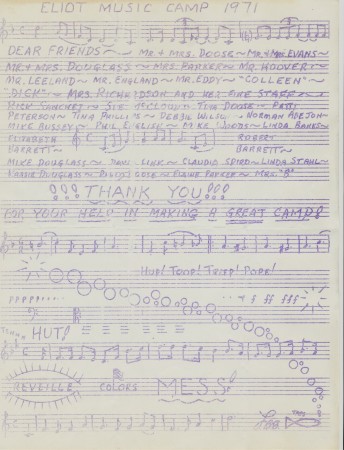 ELIOT MUSIC CAMP 1971
DEAR FRIENDS ~ MR. & MRS. DOOSE ~ MR. & MRS. EVANS ~
MR. & MRS. DOUGLASS ~ MRS. PARKER ~ MR. HOOVER ~
MR. LEELAND ~ MR. ENGLAND ~ MR. EDDY ~ "COLLEEN" ~
"DICK" ~ MRS. RICHARDSON AND HER FINE STAFF ~
RICK SANCHEZ ~ SUE ~ TINA ~ PATTI
PETERSON ~ TINA PHILLIPS ~ DEBBIE ~ NORMAN
MIKE BUSSEY ~ PHIL ENGLISH ~ MIKE WOODS ~ LINDA BANKS ~
ELIZABETH ROBERT
BARRETT ~ BARRETT ~
MIKE DOUGLASS ~ DAVE LINK ~ CLAUDIA SPIRO ~ LINDA STAHL ~
DOUGLASS ~ DOOSE ~ ELAINE PARKER ~ MRS. "B"
THANK YOU!!!
FOR YOUR HELP IN MAKING A GREAT CAMP!
HUP! TOOP! TRIP! POOP!
HUT!
REVEILLE COLORS MESS!